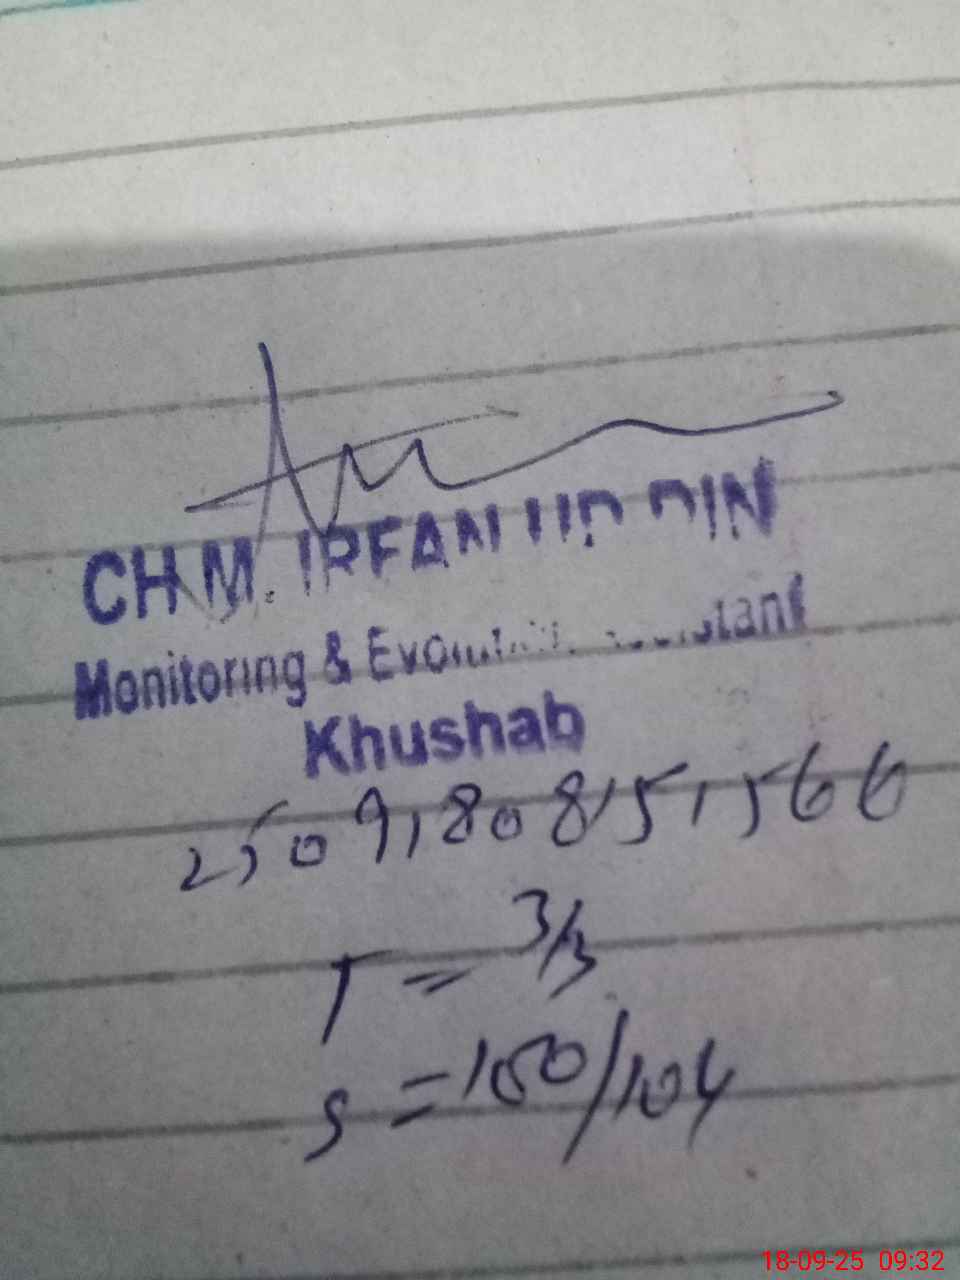 CH.M. IRFAN UD DIN
Monitoring & Assistant
Khushab
2509180815,1566
T = 3/3
S = 100/104
18-09-25 09:32